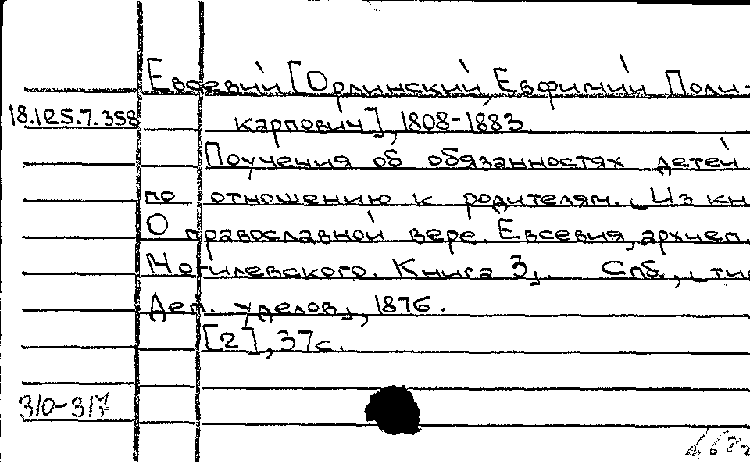 Евсевий [Орлинский, Евфимий Поли-
18.125.7.358 карпович], 1808-1883
Поучения об обязанностях детей
по отношению к родителям. Из кн
О православной вере. Евсевия, архиеп.
Могилевского. Книга 3. Спб., тип
Деп. уделов, 1876.
[2], 37с.
310-317